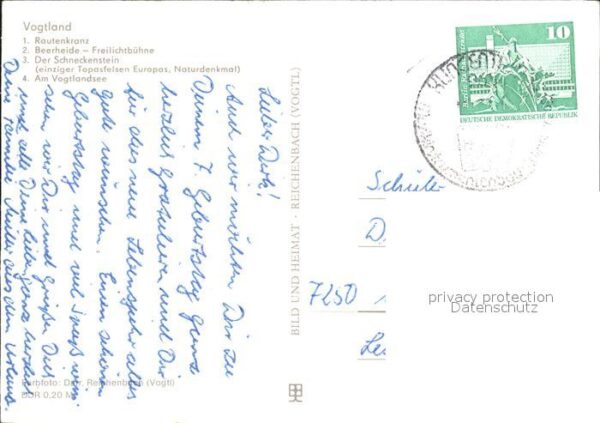 Vogtland
1. Rautenkranz
2. Beerheide – Freilichtbühne
3. Der Schneckenstein
(einziger Topasfelsen Europas, Naturdenkmal)
4. Am Vogtlandsee
Lieber Dirk!
Auch wir möchten Dir zu
Deinem 7. Geburtstag ganz
herzlich gratulieren und Dir
für das neue Lebensjahr alles
gute wünschen. Einen schönen
Geburtstag und viel Spaß wün-
schen wir Dir und Grüße Dich
und alle Deine lieben ganz herzlich
Deine Familie Müller aus dem Urlaub.
Farbfoto: Darr, Reichenbach (Vogtl)
DDR 0,20 M
BILD UND HEIMAT · REICHENBACH (VOGTL)
10
DEUTSCHE DEMOKRATISCHE REPUBLIK
Schüler
D
7250
Le
privacy protection
Datenschutz